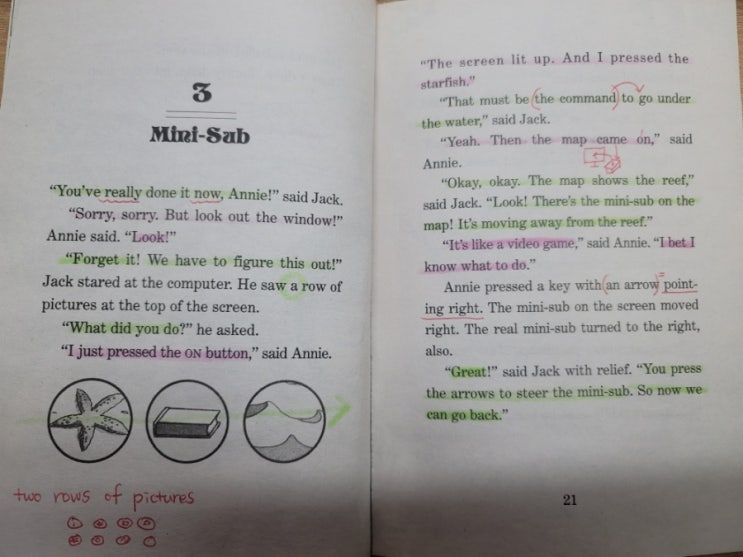 3
Mini-Sub
“You’ve really done it now, Annie!” said Jack.
“Sorry, sorry. But look out the window!”
Annie said. “Look!”
“Forget it! We have to figure this out!”
Jack stared at the computer. He saw a row of
pictures at the top of the screen.
“What did you do?” he asked.
“I just pressed the ON button,” said Annie.
two rows of pictures
“The screen lit up. And I pressed the
starfish.”
“That must be (the command) to go under
the water,” said Jack.
“Yeah. Then the map came on,” said
Annie.
“Okay, okay. The map shows the reef,”
said Jack. “Look! There’s the mini-sub on the
map! It’s moving away from the reef.”
“It’s like a video game,” said Annie. “I bet I
know what to do.”
Annie pressed a key with (an arrow) point-
ing right. The mini-sub on the screen moved
right. The real mini-sub turned to the right,
also.
“Great!” said Jack with relief. “You press
the arrows to steer the mini-sub. So now we
can go back.”
21